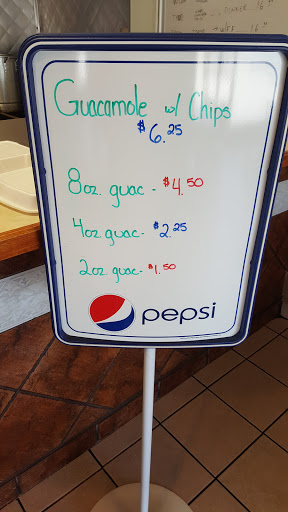 Guacamole w/ Chips
$6.25
8oz. guac - $4.50
4oz. guac - $2.25
2oz. guac - $1.50
pepsi